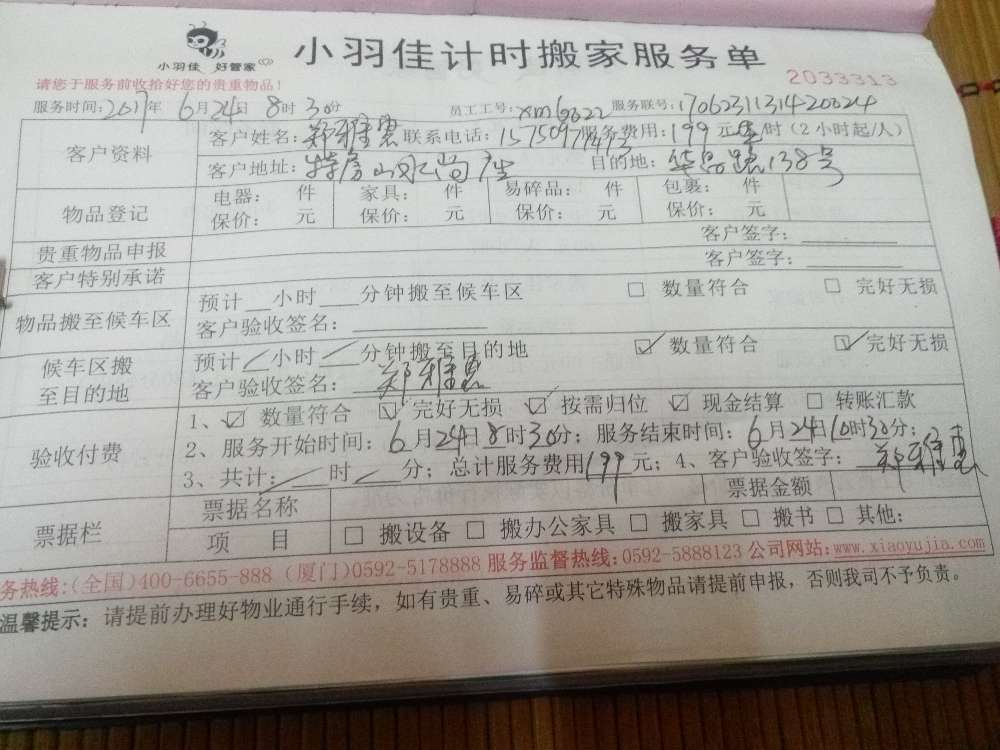 小羽佳 好管家
小羽佳计时搬家服务单
2033313
请您于服务前收拾好您的贵重物品!
服务时间:2017年6月24日8时30分 员工工号:xm6322 服务联号:1706231131420324
客户资料
客户姓名:郑雅惠 联系电话: 服务费用:199元/时(2小时起/人)
客户地址:特房山水尚座 目的地:华昌路138号
物品登记
电器: 件 家具: 件 易碎品: 件 包裹: 件
保价: 元 保价: 元 保价: 元 保价: 元
贵重物品申报 客户签字:
客户特别承诺 客户签字:
物品搬至候车区
预计 小时 分钟搬至候车区 □ 数量符合 □ 完好无损
客户验收签名:
候车区搬至目的地
预计 小时 分钟搬至目的地 ☑ 数量符合 ☑ 完好无损
客户验收签名:郑雅惠
验收付费
1、☑ 数量符合 ☑ 完好无损 ☑ 按需归位 ☑ 现金结算 □ 转账汇款
2、服务开始时间:6月24日8时30分;服务结束时间:6月24日10时30分;
3、共计: 时 分;总计服务费用199元;4、客户验收签字:郑雅惠
票据栏
票据名称 票据金额
项 目 □ 搬设备 □ 搬办公家具 □ 搬家具 □ 搬书 □ 其他:
务热线:(全国)400-6655-888 (厦门)0592-5178888 服务监督热线:0592-5888123 公司网站:www.xiaoyujia.com
温馨提示:请提前办理好物业通行手续,如有贵重、易碎或其它特殊物品请提前申报,否则我司不予负责。